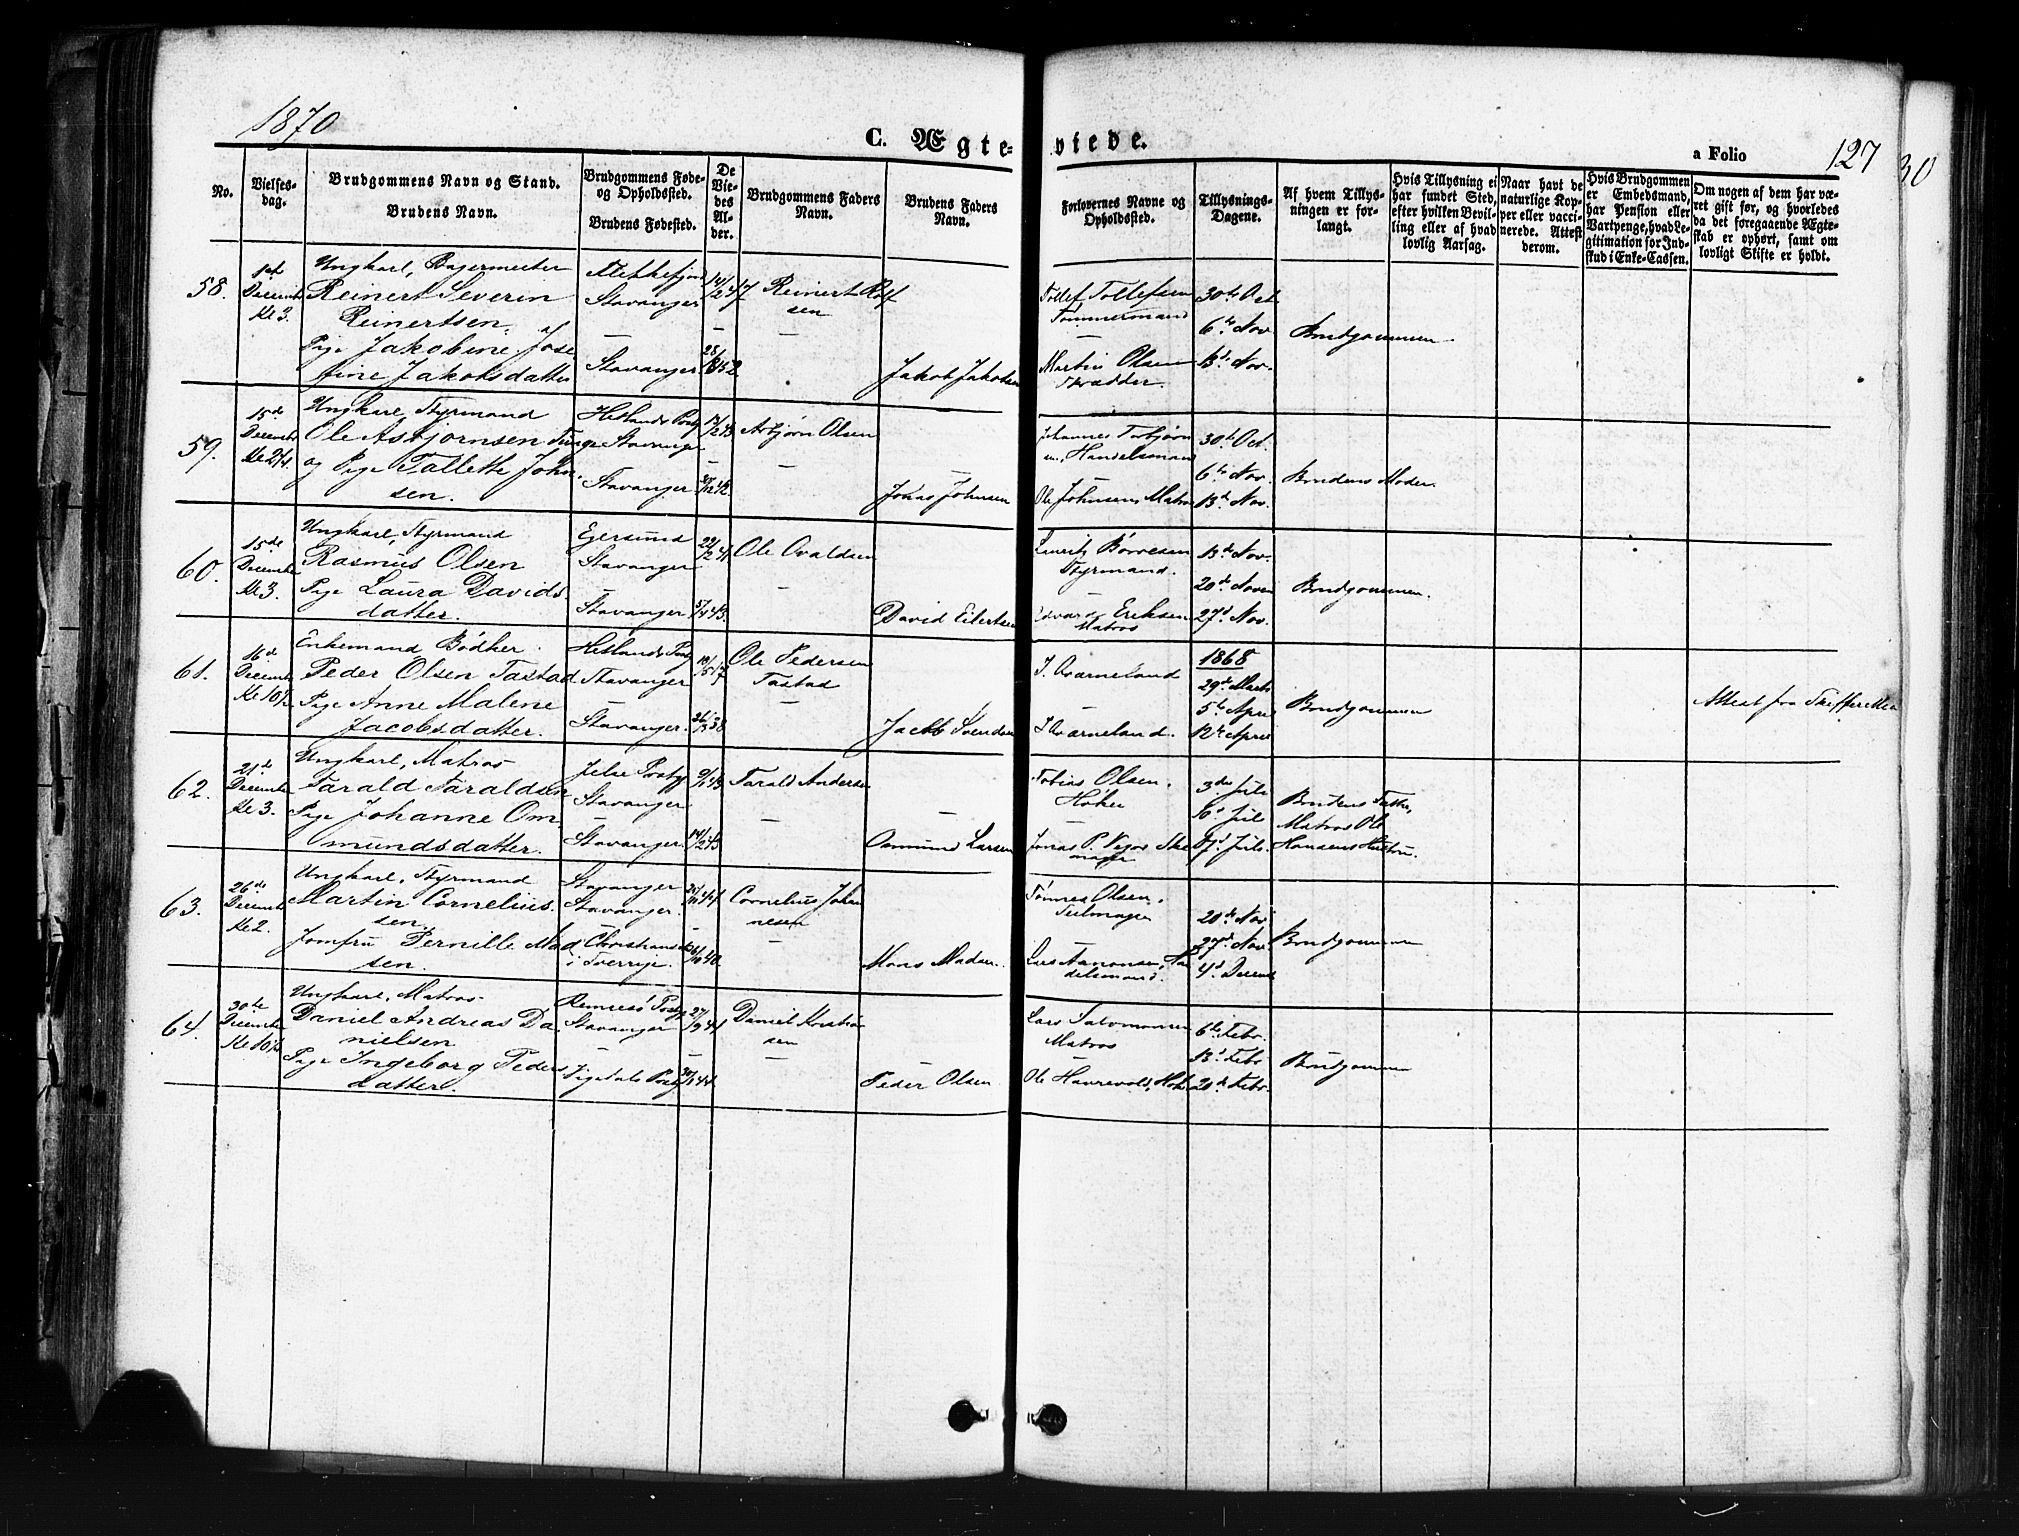 1870
C. Ægte-
viede.
a Folio
127
30
No.
Vielses-
dag.
Brudgommens Navn og Stand.
Brudens Navn.
Brudgommens Føde-
og Opholdssted.
Brudens Fødested.
De
Vie-
des
Al-
der.
Brudgommens Faders
Navn.
Brudens Faders
Navn.
Forlovernes Navne og
Opholdssted.
Tillysnings-
Dagene.
Af hvem Tillys-
ningen er for-
langt.
Hvis Tillysning ei
har fundet Sted,
efter hvilken Bevil-
ling eller af hvad
lovlig Aarsag.
Naar havt de
naturlige Kop-
per eller vacci-
nerede. Attest
derom.
Hvis Brudgommen
er Embedsmand,
har Pension eller
Vartpenge, hvad Le-
gitimation for Ind-
skud i Enke-Cassen.
Om nogen af dem har væ-
ret gift før, og hvorledes
da det foregaaende Ægte-
skab er ophørt, samt om
lovligt Skifte er holdt.
58.
1st
Decemb
Kl 3.
Ungkarl, Bagermester
Reinert Severin
Reinertsen.
Pige Jakobine Jose
fine Jakobsdatter
Flekkefjord
Stavanger
Stavanger
Reinert Rolf
sen
Jakob Jakobsen
Tollef Tollefsen
Tømmermand
Martin Olsen
Skrædder.
30te Oct
6te Nov
13de Nov.
Brudgommen
59.
15de
Decemb
Kl 2½.
Ungkarl, Styrmand
Ole Asbjørnsen Tunge
og Pige Tallette John
sen.
Hetlands Præstg
Stavanger
Stavanger
Asbjørn Olsen
Jonas Johnsen
Johannes Torbjørn
sen, Handelsmand
Ole Johnsen, Matros
30te Oct.
6te Nov.
13de Nov.
Brudens Moder.
60.
15de
December
Kl 3.
Ungkarl, Styrmand
Rasmus Olsen
Pige Laura Davids
datter.
Egersund
Stavanger
Stavanger
Ole Ovaldsen
David Eilertsen
Lauritz Børresen
Styrmand.
Edvard Eriksen
Matros
13de Nov.
20de Novem
27d Nov.
Brudgommen.
61.
16de
Decemb
Kl 10½
Enkemand Bødker
Peder Olsen Tastad
Pige Anne Malene
Jacobsdatter.
Hetlands Præstg
Stavanger
Stavanger
Ole Pedersen
Tastad
Jacob Svendsen
J. Qværneland
J Qværneland.
1868
29de Marts
5te April
12te April
Brudgommen
Attest fra Skifteretten
62.
21de
December
Kl 3.
Ungkarl, Matros
Tarald Taraldsen
Pige Johanne Om
mundsdatter.
Jelse Præstg
Stavanger
Stavanger.
Tarald Andersen
Ommund Larsen
Tobias Olsen,
Høker
Jonas P. Vigos Sko
mager
3die Juli
10d Juli
17d Juli.
Brudens Fader,
Matros Ole
Hansens Hustru.
63.
26de
Decemb
Kl 2.
Ungkarl, Styrmand
Martin Cornelius
sen.
Jomfru Pernille Mad
sen.
Stavanger
Stavanger.
Christiansstad
i Sverrige.
Cornelius Johan
nesen
Mons Madsen.
Tønnes Olsen,
Seilmager
Lars Aanonsen, Han
delsmand.
20de Nov
27de Nov.
4d Decemb
Brudgommen
64.
30te
December
Kl 10½
Ungkarl, Matros
Daniel Andreas Da
nielsen
Pige Ingeborg Peders
datter.
Rennesø Præstg
Stavanger
Sigdals Præstg
Daniel Kristian
sen
Peder Olsen
Lars Salomonsen
Matros
Ole Haurevold, Høker
6te Febr.
13d Febr
20de Febr.
Brudgommen